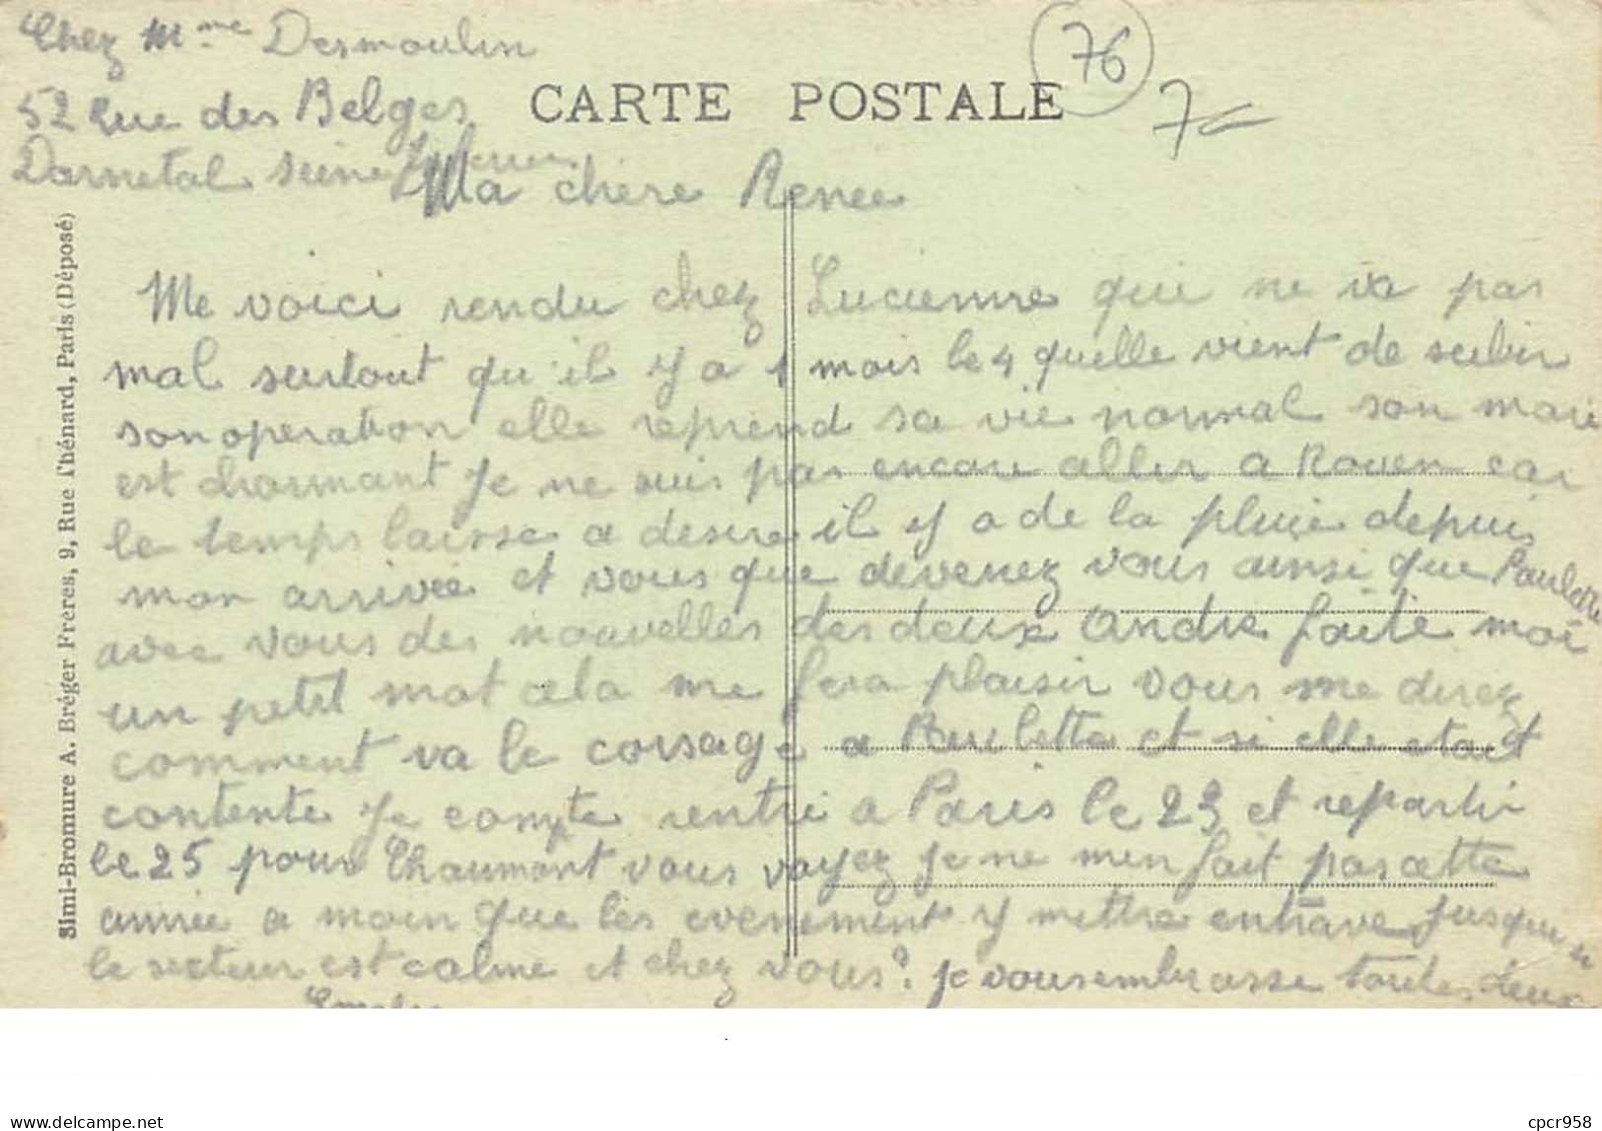 Chez Mme Desmoulin
52 Rue des Belges
Darnetal Seine Inferieure
CARTE POSTALE
76
7€
Ma chere Renee
Me voici rendu chez Lucienne qui ne va pas
mal surtout qu'il y a 1 mois le 4 quelle vient de subir
son operation elle reprend sa vie normal son mari
est charmant je ne suis pas encore aller a Rouen car
le temps laisse a desire il y a de la pluie depuis
mon arrivée et vous que devenez vous ainsi que Paulette
avec vous des nouvelles des deux André faite moi
un petit mot cela me fera plaisir vous me direz
comment va le corsage a Paulette et si elle etait
contente je compte rentre a Paris le 23 et repartir
le 25 pour Chaumont vous voyez je ne men fait pas cette
année a moin que les evenement y mettre entrave jusqu'ici
le secteur est calme et chez vous? je vous embrasse toutes deux
Simi-Bromure A. Bréger Frères, 9, Rue Thénard, Paris (Déposé)
https://www.delcampe.net
cpcr958